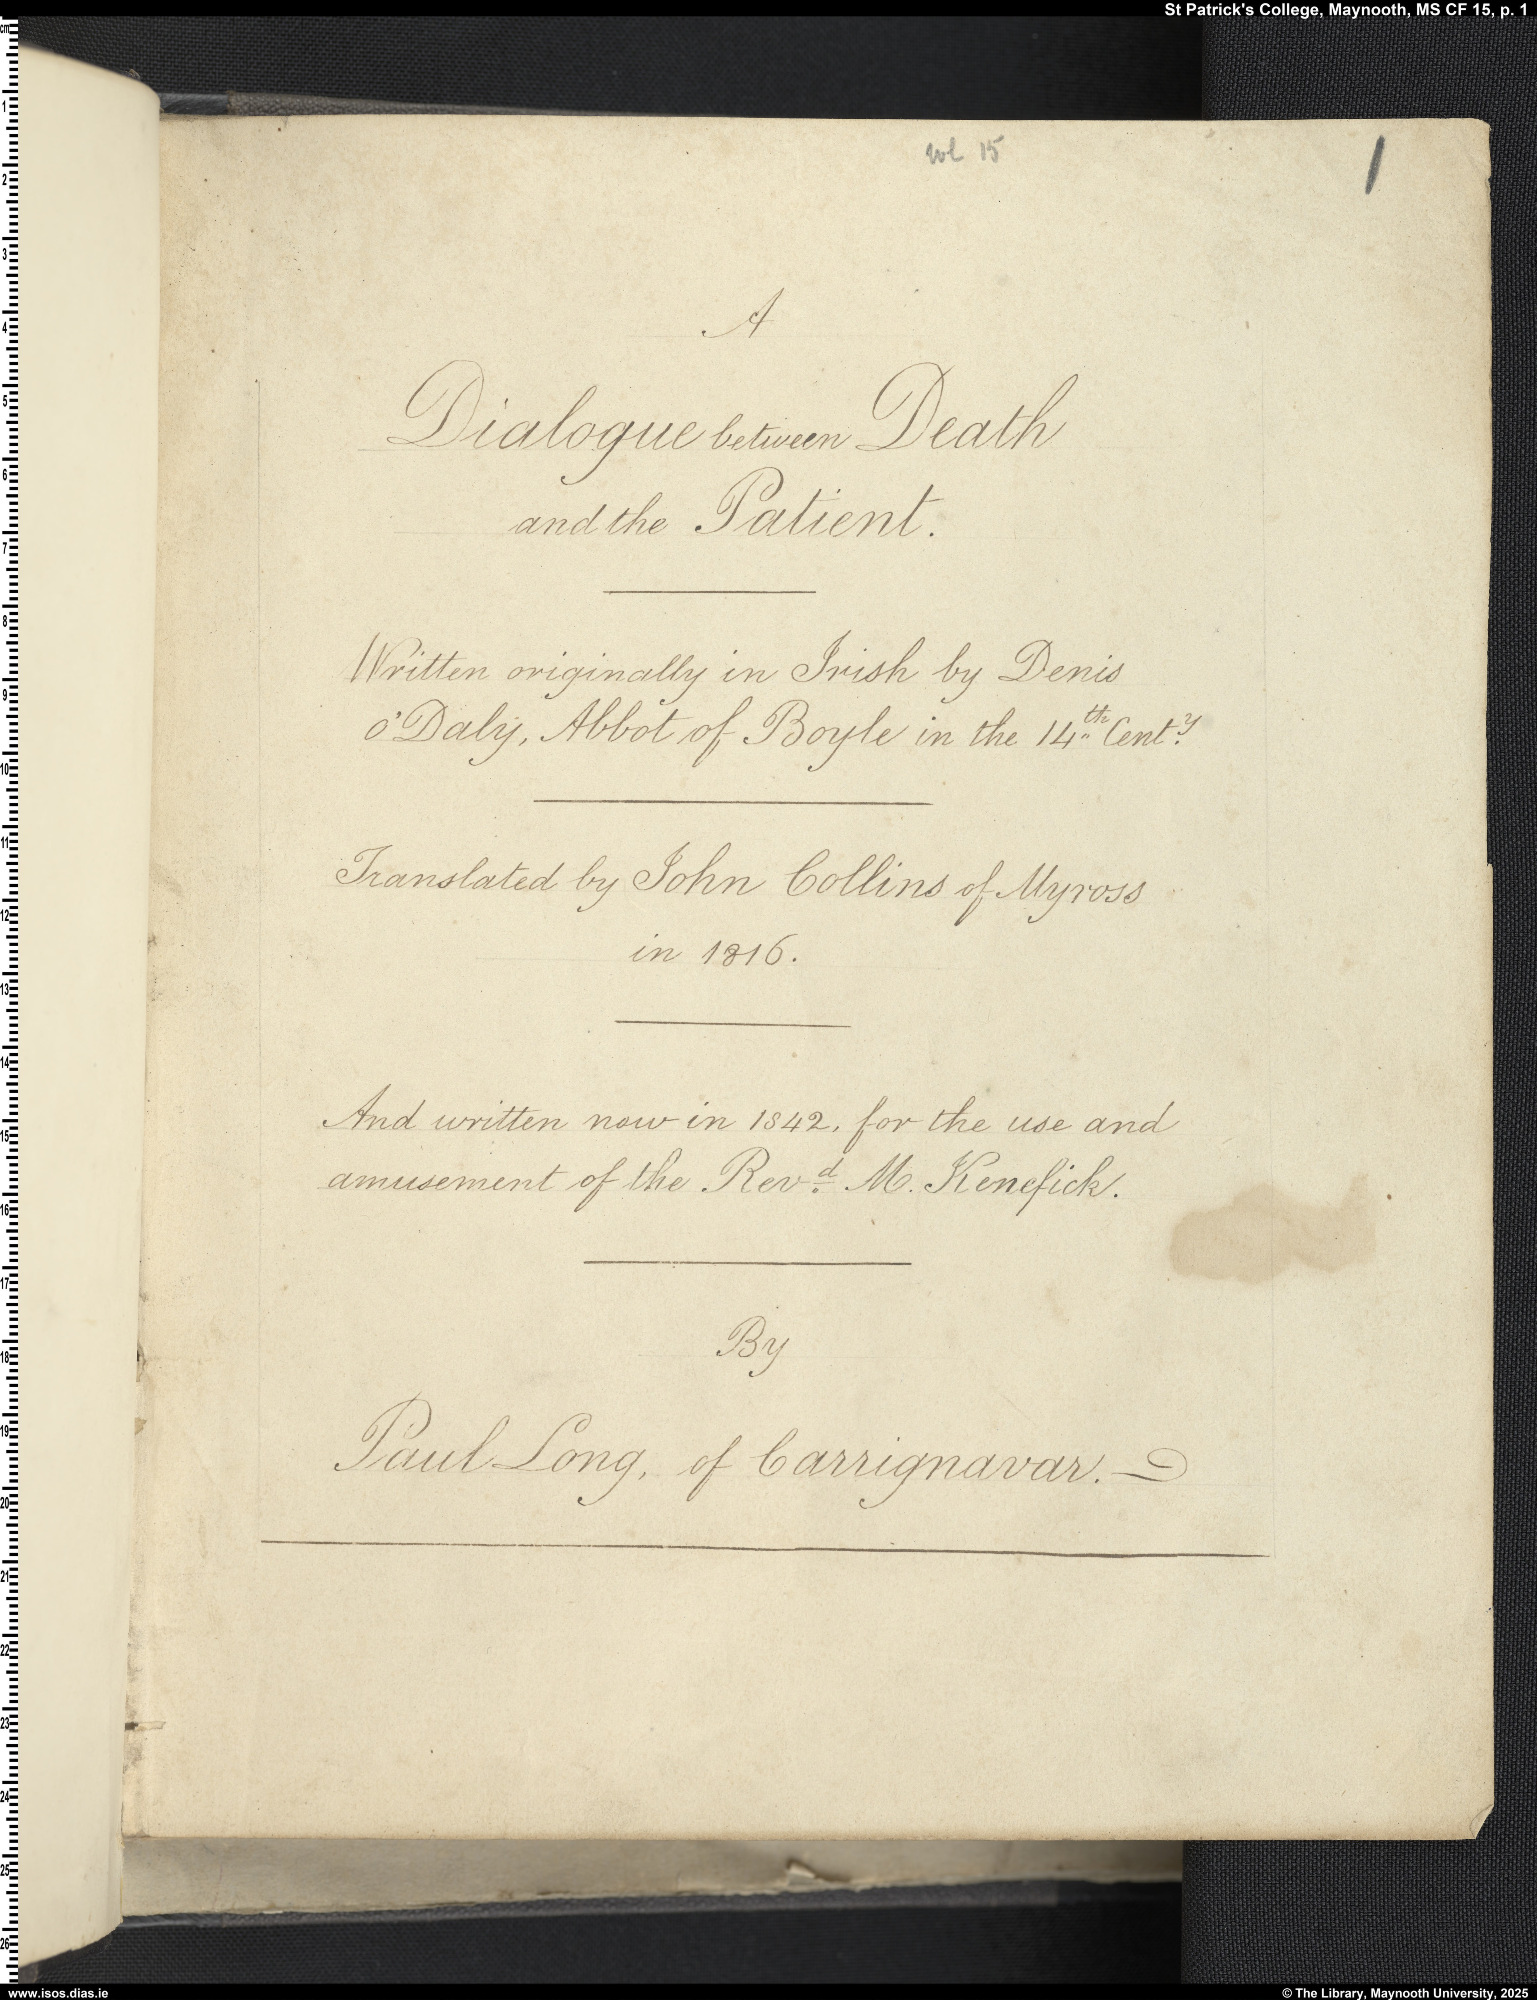 St Patrick's College, Maynooth, MS CF 15, p. 1
vol. 15
1
A
Dialogue between Death
and the Patient.
Written originally in Irish by Denis
O'Daly, Abbot of Boyle in the 14th Centy.
Translated by John Collins of Myross
in 1816.
And written now in 1842, for the use and
amusement of the Revd. M. Kenefick.
By
Paul Long, of Carrignavar.
cm
1
2
3
4
5
6
7
8
9
10
11
12
13
14
15
16
17
18
19
20
21
22
23
24
25
26
www.isos.dias.ie
© The Library, Maynooth University, 2025